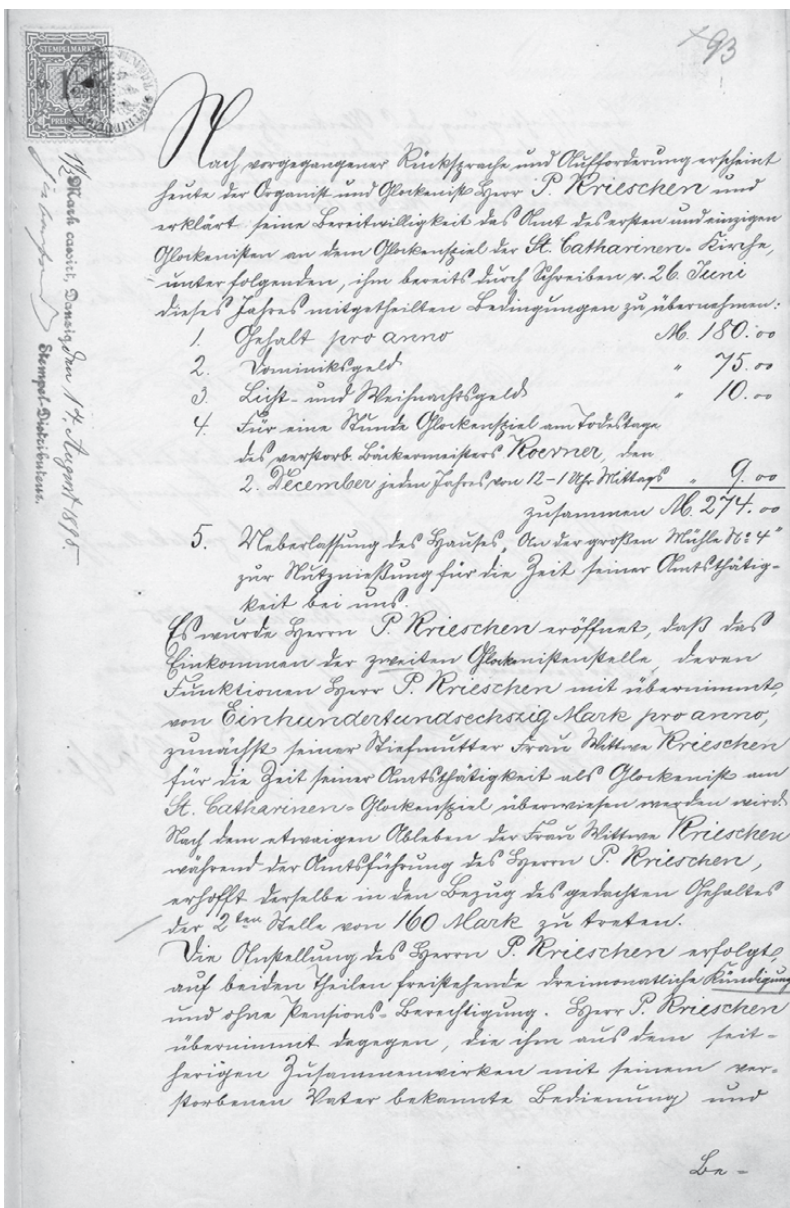 93
STEMPELMARKE
PREUSSEN
1½ Mark cassirt, Danzig, den 17. August 1895.
Stempel-Distributeur.
Nach vorgegangener Rücksprache und Aufforderung erscheint
heute der Organist und Glockenist Herr P. Krieschen und
erklärt seine Bereitwilligkeit das Amt des ersten und einzigen
Glockenisten an dem Glockenspiel der St. Catharinen-Kirche,
unter folgenden, ihm bereits durch Schreiben v. 26. Juni
dieses Jahres mitgetheilten Bedingungen zu übernehmen:
1. Gehalt pro anno M. 180.00
2. Dominiksgeld " 75.00
3. Licht- und Weihnachtsgeld " 10.00
4. Für eine Stunde Glockenspiel am Todestage
des verstorb. Bäckermeisters Koerner, den
2. December jeden Jahres, von 12-1 Uhr Mittags " 9.00
zusammen M. 274.00
5. Ueberlassung des Hauses „An der großen Mühle No. 4"
zur Nutznießung für die Zeit seiner Amtsthätig-
keit bei uns.
Es wurde Herrn P. Krieschen eröffnet, daß das
Einkommen der zweiten Glockenistenstelle, deren
Funktionen Herr P. Krieschen mit übernimmt,
von Einhundertundsechszig Mark pro anno,
zunächst seiner Stiefmutter Frau Wittwe Krieschen
für die Zeit seiner Amtsthätigkeit als Glockenist am
St. Catharinen-Glockenspiel überwiesen werden wird.
Nach dem etwaigen Ableben der Frau Wittwe Krieschen
während der Amtsführung des Herrn P. Krieschen,
erhofft derselbe in den Bezug des gedachten Gehaltes
der 2ten Stelle von 160 Mark zu treten.
Die Anstellung des Herrn P. Krieschen erfolgt,
auf beiden Theilen freistehende dreimonatliche Kündigung
und ohne Pensions-Berechtigung. Herr P. Krieschen
übernimmt dagegen, die ihm aus dem seit-
herigen Zusammenwirken mit seinem ver-
storbenen Vater bekannte Bedienung und
Be-